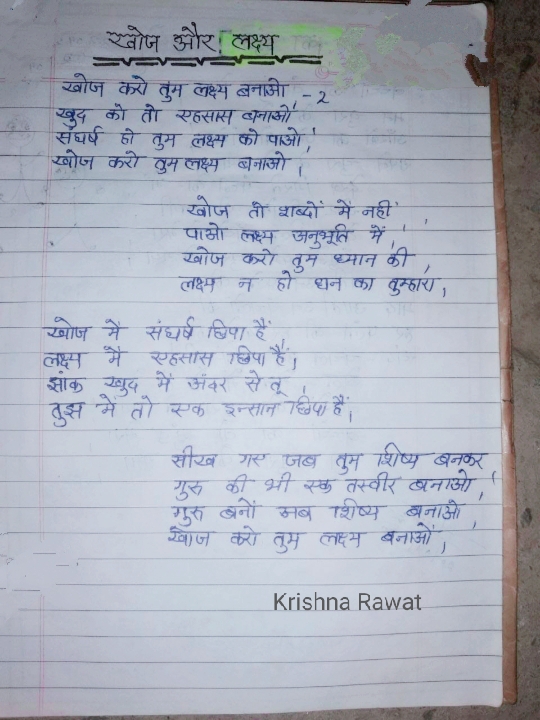 खोज और लक्ष्य
खोज करो तुम लक्ष्य बनाओ -2
खुद को तो एहसास बनाओ,
संघर्ष हो तुम लक्ष्य को पाओ,
खोज करो तुम लक्ष्य बनाओ,
खोज तो शब्दों में नहीं,
पाओ लक्ष्य अनुभूति में,
खोज करो तुम ध्यान की,
लक्ष्य न हो धन का तुम्हारा,
खोज में संघर्ष छिपा हैं
लक्ष्य में एहसास छिपा हैं,
झांक खुद में अंदर से तू,
तुझ में तो एक इन्सान छिपा हैं,
सीख गए जब तुम शिष्य बनकर
गुरु की भी एक तस्वीर बनाओ,
गुरु बनों अब शिष्य बनाओ,
खोज करो तुम लक्ष्य बनाओ,
Krishna Rawat